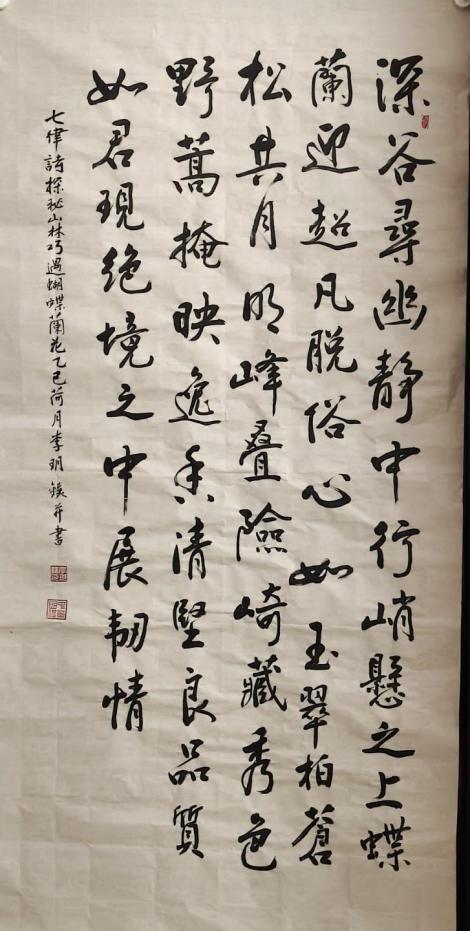 深谷尋幽靜中行峭懸之上蝶
蘭迎超凡脫俗心如玉翠柏蒼
松共月明峰疊險崎藏秀色
野蒿掩映逸香清堅良品質
如君現絕境之中展韌情
七律詩探秘山林巧遇蝴蝶蘭花乙巳荷月李玥鋑并書